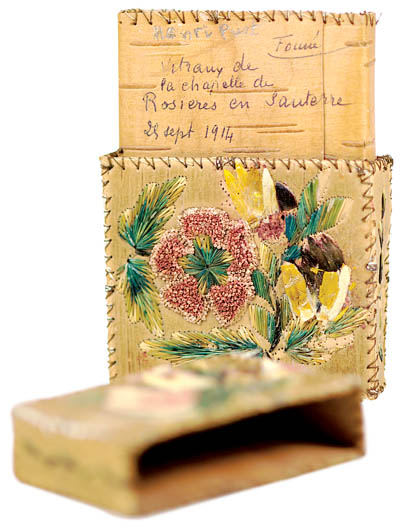 Fouué
Vitraux de
la chapelle de
Rosieres en Santerre
29 sept 1914